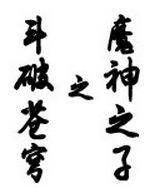 斗破苍穹
之
魔神之子